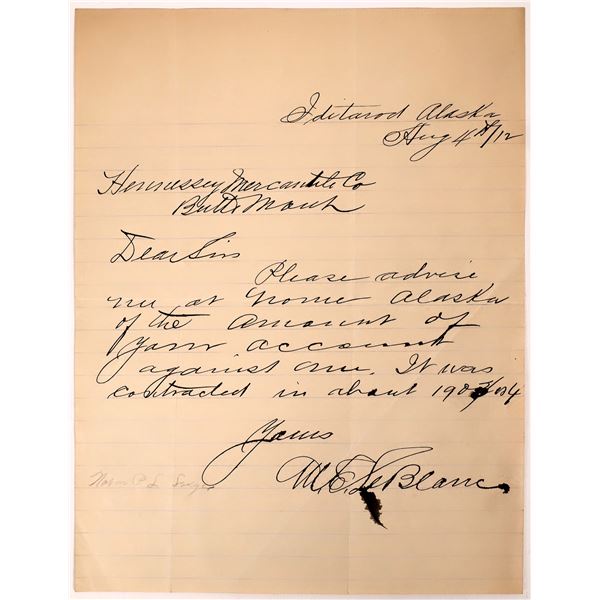 Iditarod Alaska
Aug 4th/12
Hennessey Mercantile Co
Butte Mont
Dear Sir
Please advise
me at Nome Alaska
of the amount of
your account
against me. It was
contracted in about 1903/or4
Yours
M.E. LeBlanc